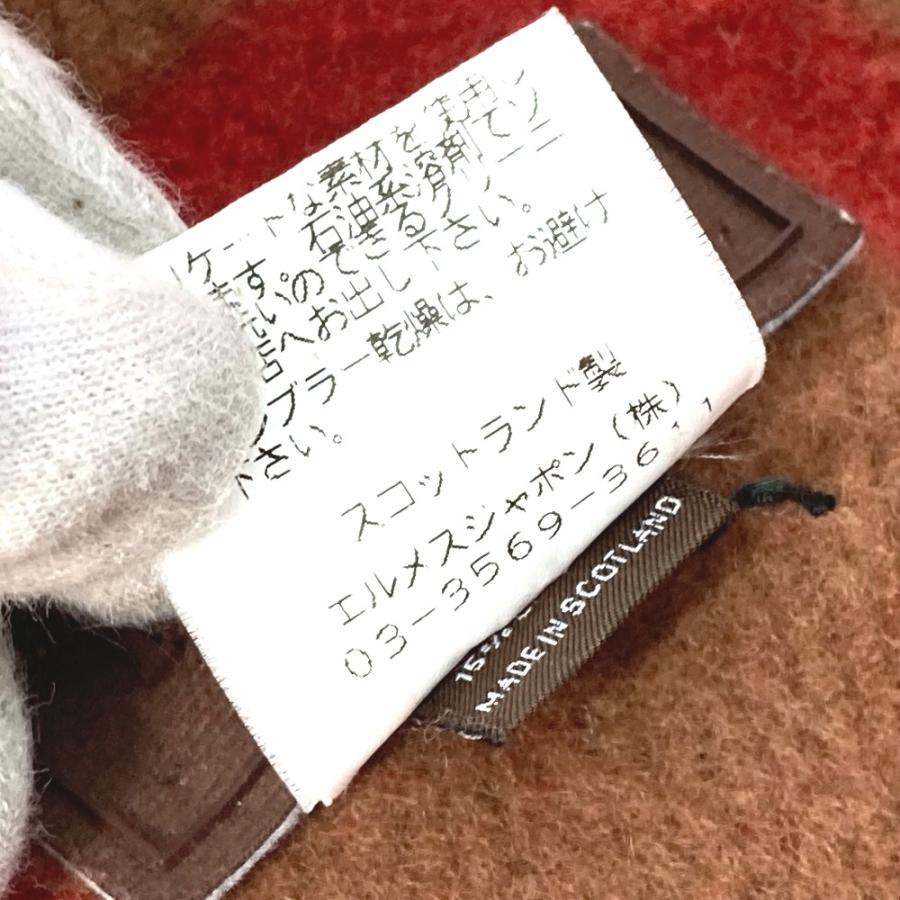 ケートな素材を使用
す。石油系溶剤でソ
いのできるクリーニ
へお出し下さい。
ブラー乾燥は、お避け
さい。
スコットランド製
エルメスジャポン(株)
03-3569-36
MADE IN SCOTLAND